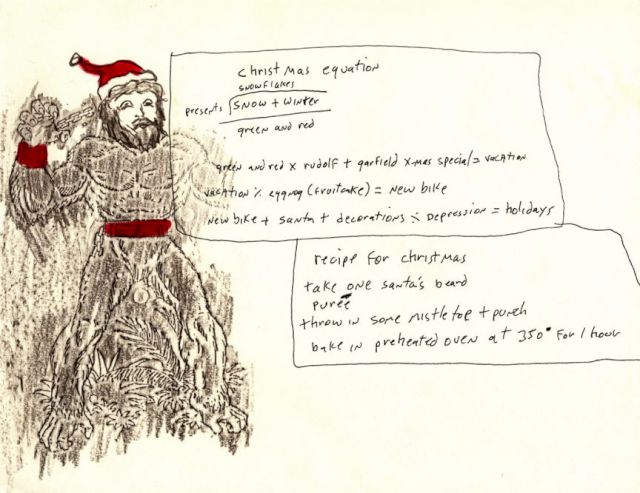 christmas equation
snowflakes
presents snow + winter
green and red
green and red x rudolf + garfield xmas special = vacation
vacation % eggnog (fruitcake) = new bike
new bike + santa + decorations ÷ depression = holidays
recipe for christmas
take one santa's beard
puree
throw in some mistletoe + punch
bake in preheated oven at 350° for 1 hour